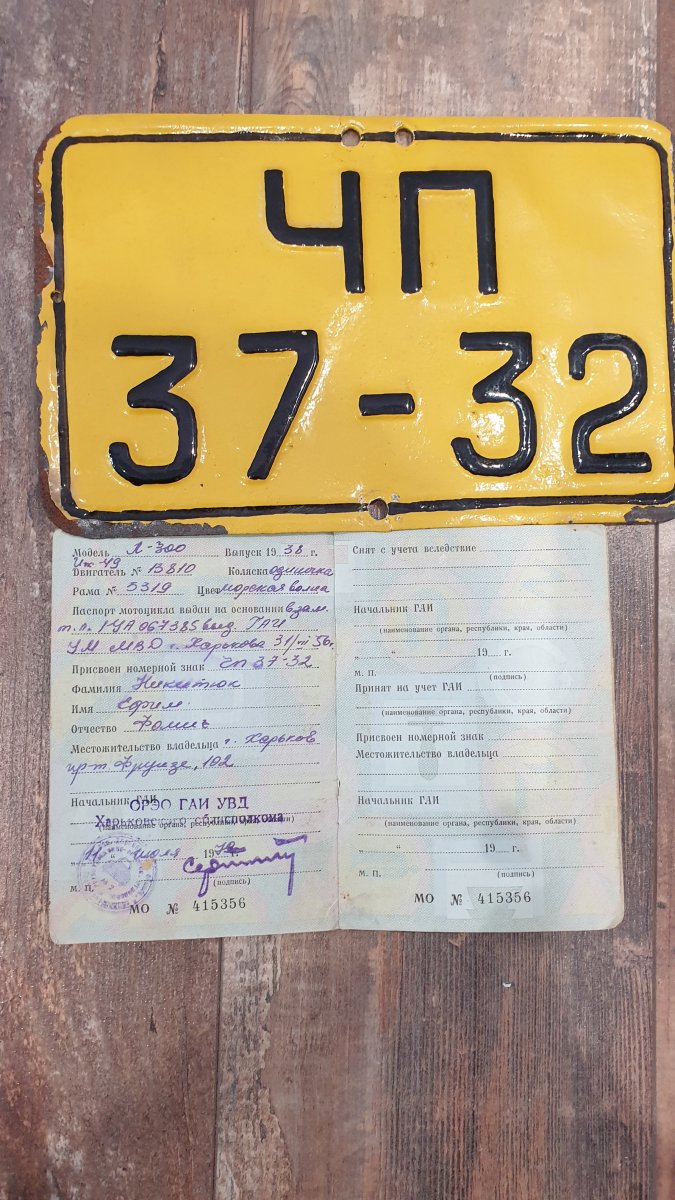 ЧП
37-32
Модель Л-300 Выпуск 1938 г.
Иж-49
Двигатель № В810 Коляска одиночка
Рама № 5319 Цвет морская волна
Паспорт мотоцикла выдан на основании взам.
т.п. 1УА 067385 выд. ГАИ
УМ МВД г. Харькова 31/VII 56г.
Присвоен номерной знак чп 37-32
Фамилия Никитюк
Имя Ефим
Отчество Фомич
Местожительство владельца г. Харьков
пр-т Фрунзе, 102
Начальник ГАИ
ОРЭО ГАИ УВД
Харьковского облисполкома
(наименование органа, республики, края, области)
„11“ июля 1979 г.
(подпись)
М. П.
МО № 415356
Снят с учета вследствие
Начальник ГАИ
(наименование органа, республики, края, области)
„ “ 19 г.
М. П. (подпись)
Принят на учет ГАИ
(наименование органа, республики, края, области)
Присвоен номерной знак
Местожительство владельца
Начальник ГАИ
(наименование органа, республики, края, области)
„ “ 19 г.
М. П. (подпись)
МО № 415356